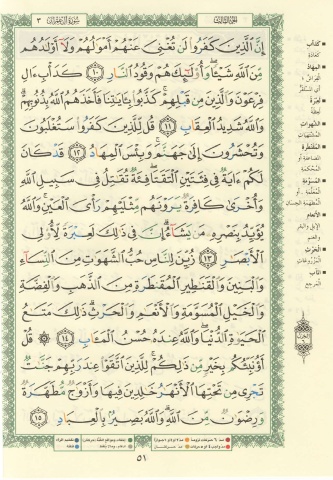 الجزء الثالث
سورة آل عمران ٣
إِنَّ الَّذِينَ كَفَرُوا لَن تُغْنِيَ عَنْهُمْ أَمْوَالُهُمْ وَلَا أَوْلَادُهُم
مِّنَ اللَّهِ شَيْئًا وَأُولَٰئِكَ هُمْ وَقُودُ النَّارِ ١٠ كَدَأْبِ آلِ
فِرْعَوْنَ وَالَّذِينَ مِن قَبْلِهِمْ كَذَّبُوا بِآيَاتِنَا فَأَخَذَهُمُ اللَّهُ بِذُنُوبِهِمْ
وَاللَّهُ شَدِيدُ الْعِقَابِ ١١ قُل لِّلَّذِينَ كَفَرُوا سَتُغْلَبُونَ
وَتُحْشَرُونَ إِلَىٰ جَهَنَّمَ وَبِئْسَ الْمِهَادُ ١٢ قَدْ كَانَ
لَكُمْ آيَةٌ فِي فِئَتَيْنِ الْتَقَتَا فِئَةٌ تُقَاتِلُ فِي سَبِيلِ اللَّهِ
وَأُخْرَىٰ كَافِرَةٌ يَرَوْنَهُم مِّثْلَيْهِمْ رَأْيَ الْعَيْنِ وَاللَّهُ
يُؤَيِّدُ بِنَصْرِهِ مَن يَشَاءُ إِنَّ فِي ذَٰلِكَ لَعِبْرَةً لِّأُولِي
الْأَبْصَارِ ١٣ زُيِّنَ لِلنَّاسِ حُبُّ الشَّهَوَاتِ مِنَ النِّسَاءِ
وَالْبَنِينَ وَالْقَنَاطِيرِ الْمُقَنطَرَةِ مِنَ الذَّهَبِ وَالْفِضَّةِ
وَالْخَيْلِ الْمُسَوَّمَةِ وَالْأَنْعَامِ وَالْحَرْثِ ذَٰلِكَ مَتَاعُ
الْحَيَاةِ الدُّنْيَا وَاللَّهُ عِندَهُ حُسْنُ الْمَآبِ ١٤ قُلْ
أَؤُنَبِّئُكُم بِخَيْرٍ مِّن ذَٰلِكُمْ لِلَّذِينَ اتَّقَوْا عِندَ رَبِّهِمْ جَنَّاتٌ
تَجْرِي مِن تَحْتِهَا الْأَنْهَارُ خَالِدِينَ فِيهَا وَأَزْوَاجٌ مُّطَهَّرَةٌ
وَرِضْوَانٌ مِّنَ اللَّهِ وَاللَّهُ بَصِيرٌ بِالْعِبَادِ ١٥
كدأب
كعادة
المهاد
الفراش
لعبرة
لعظة
الشهوات
المشتهيات
المقنطرة
المضاعفة أو
المحكمة
المسومة
المعلمة أو
المطهمة الحسان
الأنعام
الإبل والبقر
والغنم
الحرث
المزروعات
المآب
المرجع
٥١